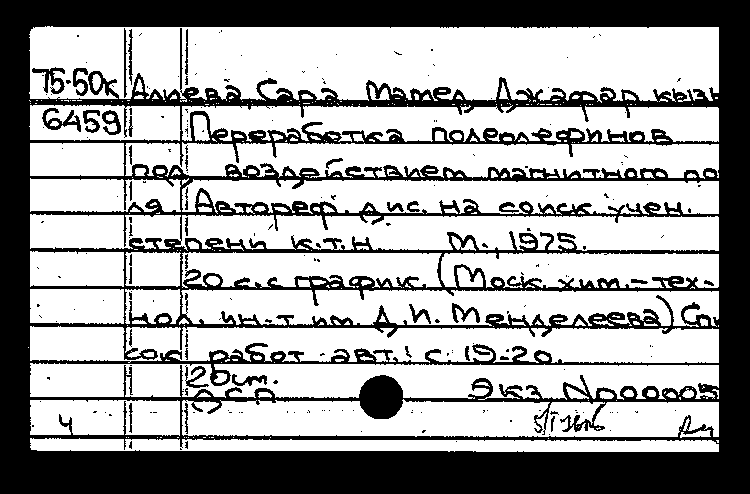 75-50к Алиева, Сара Мамед Джафар кызы
6459 Переработка полеолефинов
под воздействием магнитного по
ля. Автореф. дис. на соиск. учен.
степени к.т.н. М., 1975.
20 с. с график. (Моск. хим.-тех-
нол. ин-т им. Д.И. Менделеева) Спи
сок работ авт.: с. 19-20.
2б ст.
ДСП Экз №00005
4